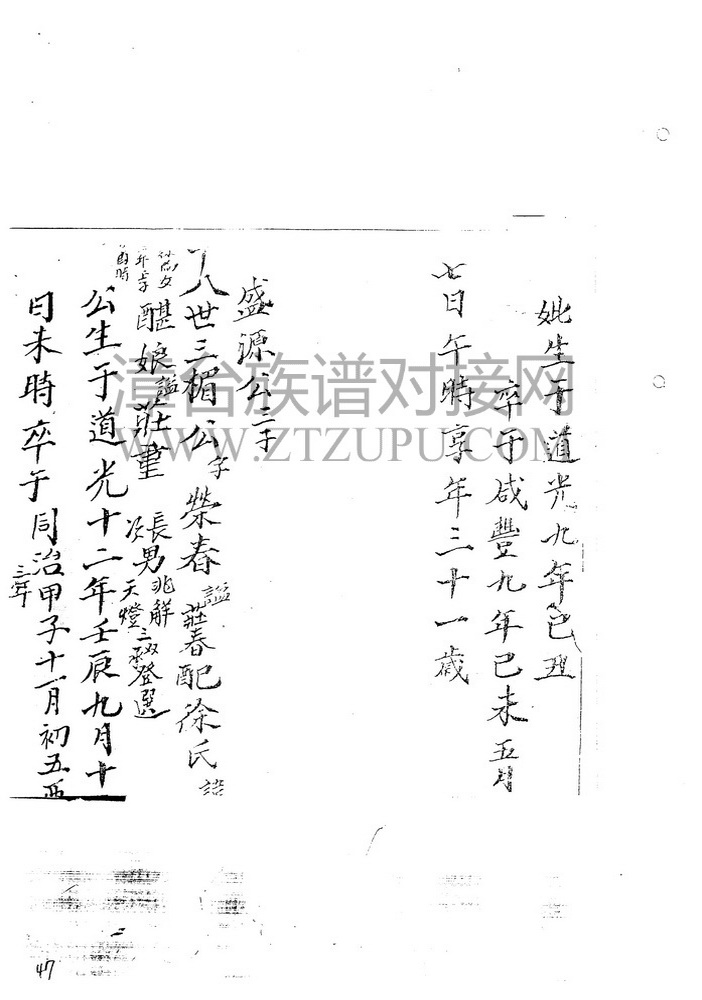 妣生于道光九年己丑
卒于咸豐九年己未五月
七日午時享年三十一歲
盛源公三子
十八世三楣公子榮春諡莊春配徐氏
諡娘諡莊重長男兆解次天燈三登選
酉時
公生于道光十二年壬辰九月十
日未時卒于同治三年甲子十一月初五酉
漳台族谱对接网
WWW.ZTZUPU.COM
47